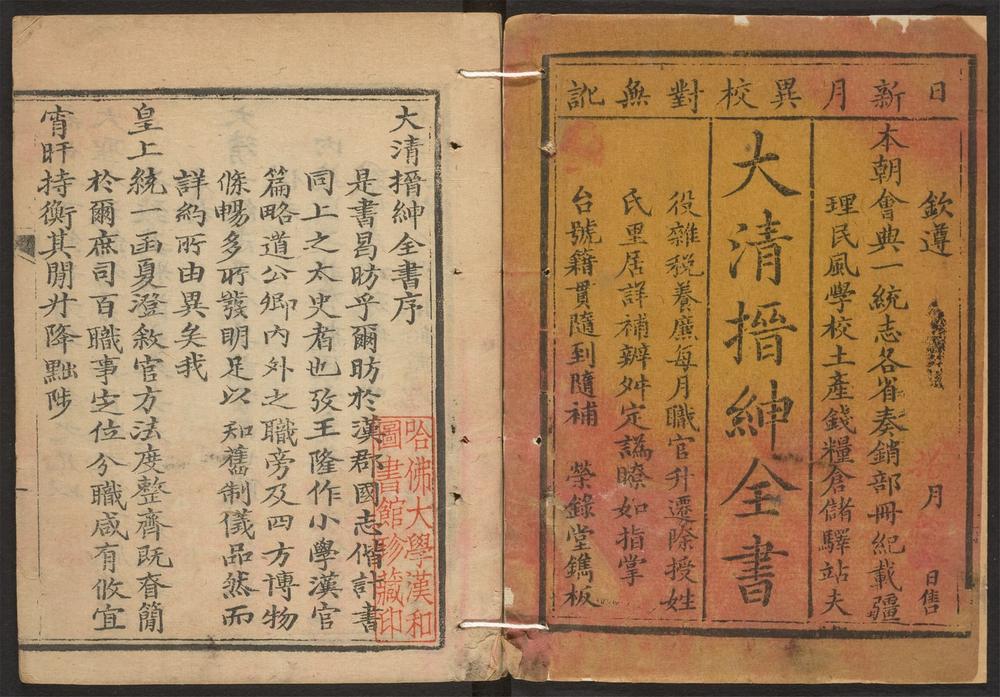 日新月異校對無訛
欽遵
月
日售
本朝會典一統志各省奏銷部冊紀載疆
理民風學校土產錢糧倉儲驛站夫
大清搢紳全書
役雜税養廉每月職官升遷除授姓
氏里居詳補辦舛定譌瞭如指掌
台號籍貫隨到隨補
榮錄堂鐫板
大清搢紳全書序
是書昌昉乎爾昉於漢郡國志偕計書
同上之太史者也攷王隆作小學漢官
篇略道公卿內外之職旁及四方博物
條暢多所發明足以知舊制儀品然而
詳約所由異矣我
皇上統一函夏澄敘官方法度整齊既眘簡
於爾庶司百職事定位分職咸有攸宜
宵旰持衡其閒升降黜陟
哈佛大學漢和
圖書館珍藏印